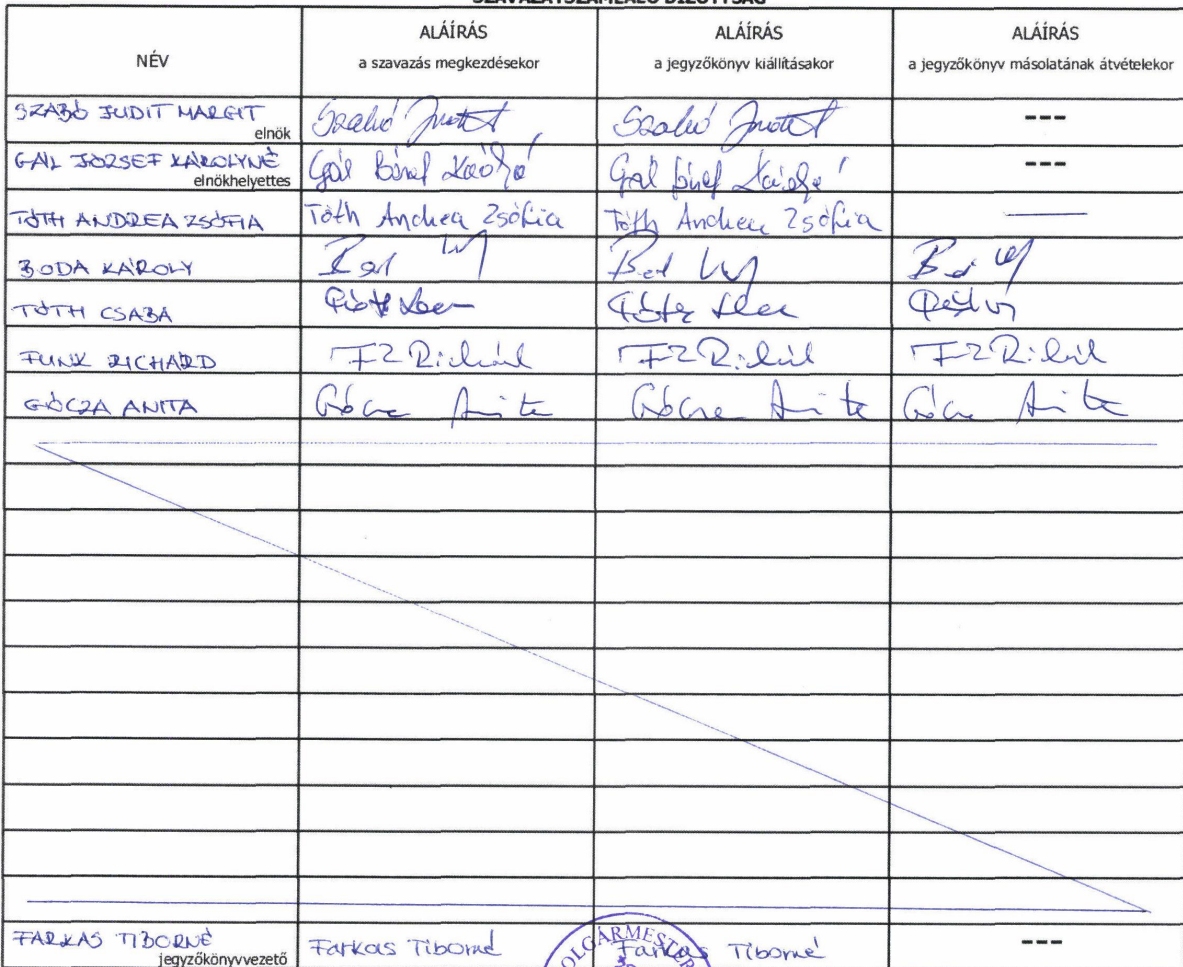 SZAVAZATSZÁMLÁLÓ BIZOTTSÁG
NÉV
ALÁÍRÁS
a szavazás megkezdésekor
ALÁÍRÁS
a jegyzőkönyv kiállításakor
ALÁÍRÁS
a jegyzőkönyv másolatának átvételekor
SZABÓ JUDIT MARGIT
elnök
Szabó Judit
Szabó Judit
---
GÁL JÓZSEF KÁROLYNÉ
elnökhelyettes
Gál József Károlyné
Gál József Károlyné
---
TÓTH ANDREA ZSÓFIA
Tóth Andrea Zsófia
Tóth Andrea Zsófia
BODA KÁROLY
TÓTH CSABA
FUNK RICHARD
GÓCZA ANITA
Gócza Anita
Gócza Anita
Gócza Anita
FARKAS TIBORNÉ
jegyzőkönyvvezető
Farkas Tiborné
Farkas Tiborné
---